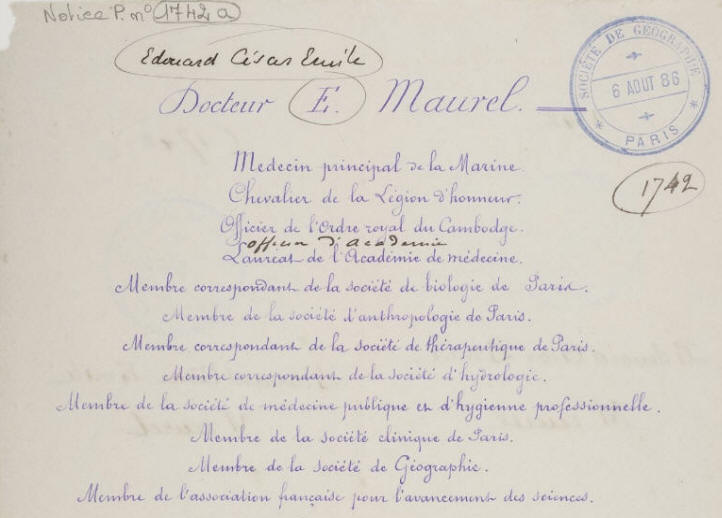 Notice P. nº 1742 a
Edouard César Emile
Docteur E. Maurel.
SOCIÉTÉ DE GÉOGRAPHIE
6 AOUT 86
PARIS
1742
Médecin principal de la Marine.
Chevalier de la Légion d'honneur.
Officier de l'Ordre royal du Cambodge.
officier d'académie
Lauréat de l'Académie de médecine.
Membre correspondant de la société de biologie de Paris.
Membre de la société d'anthropologie de Paris.
Membre correspondant de la société de thérapeutique de Paris.
Membre correspondant de la société d'hydrologie.
Membre de la société de médecine publique et d'hygienne professionnelle.
Membre de la société clinique de Paris.
Membre de la société de Géographie.
Membre de l'association française pour l'avancement des sciences.